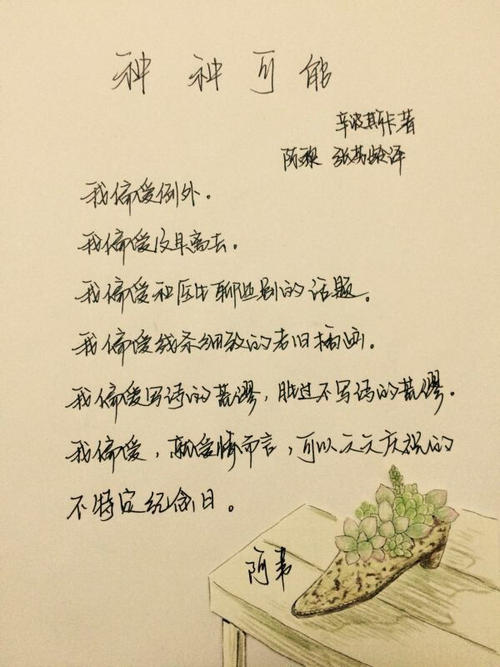 种种可能
辛波斯卡著
陈黎 张芬龄译
我偏爱例外。
我偏爱及早离去。
我偏爱和医生聊些别的话题。
我偏爱线条细致的老旧插画。
我偏爱写诗的荒谬，胜过不写诗的荒谬。
我偏爱，就爱情而言，可以天天庆祝的
不特定纪念日。
阿韦